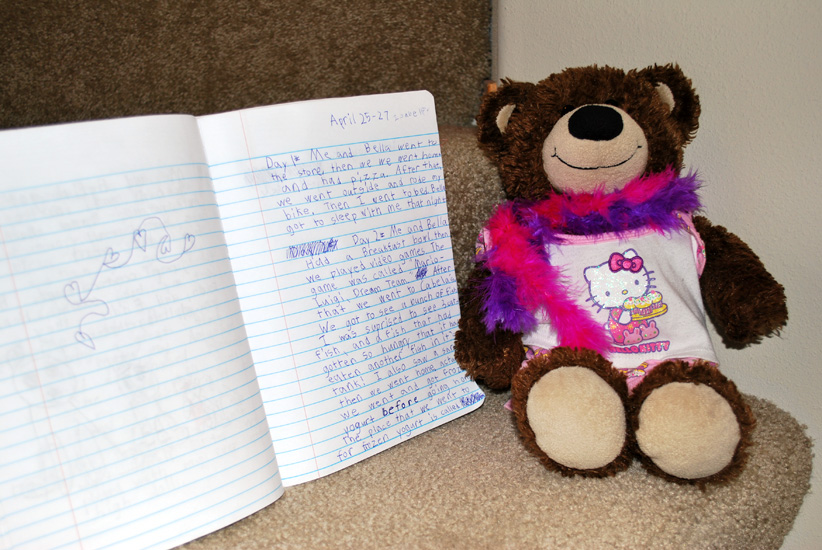 April 25-27
Day 1: Me and Bella went to
the store, then we we went home
and had pizza. After that
we went outside and rode my
bike. Then I went to bed. Bella
got to sleep with me that night
Day 2: Me and Bella
Had a Breakfast bowl, then
we played video games. The
game was called Mario-
Luigi Dream Team. After
that we went to Cabela's
We got to see a bunch of fish
I was suprised to see
fish, and a fish that had
gotten so hungry that it had
eaten another fish in it's
tank! I also saw a
then we went home
we went and got froze
yogurt before going home
the place that we went to
for frozen yogurt is called
HELLO KITTY